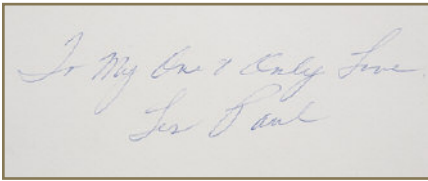 To My One & Only Love
Les Paul